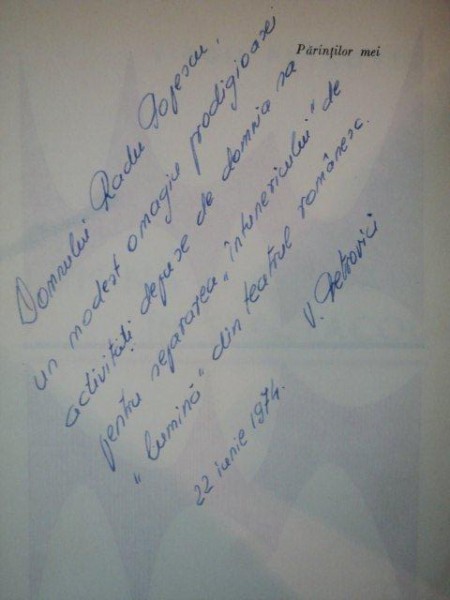 Părinților mei
Domnului Radu Popescu,
un modest omagiu prodigioasei
activități depuse de domnia sa
pentru separarea „întunericului” de
„lumină” din teatrul românesc.
V. Petrovici
22 iunie 1974.